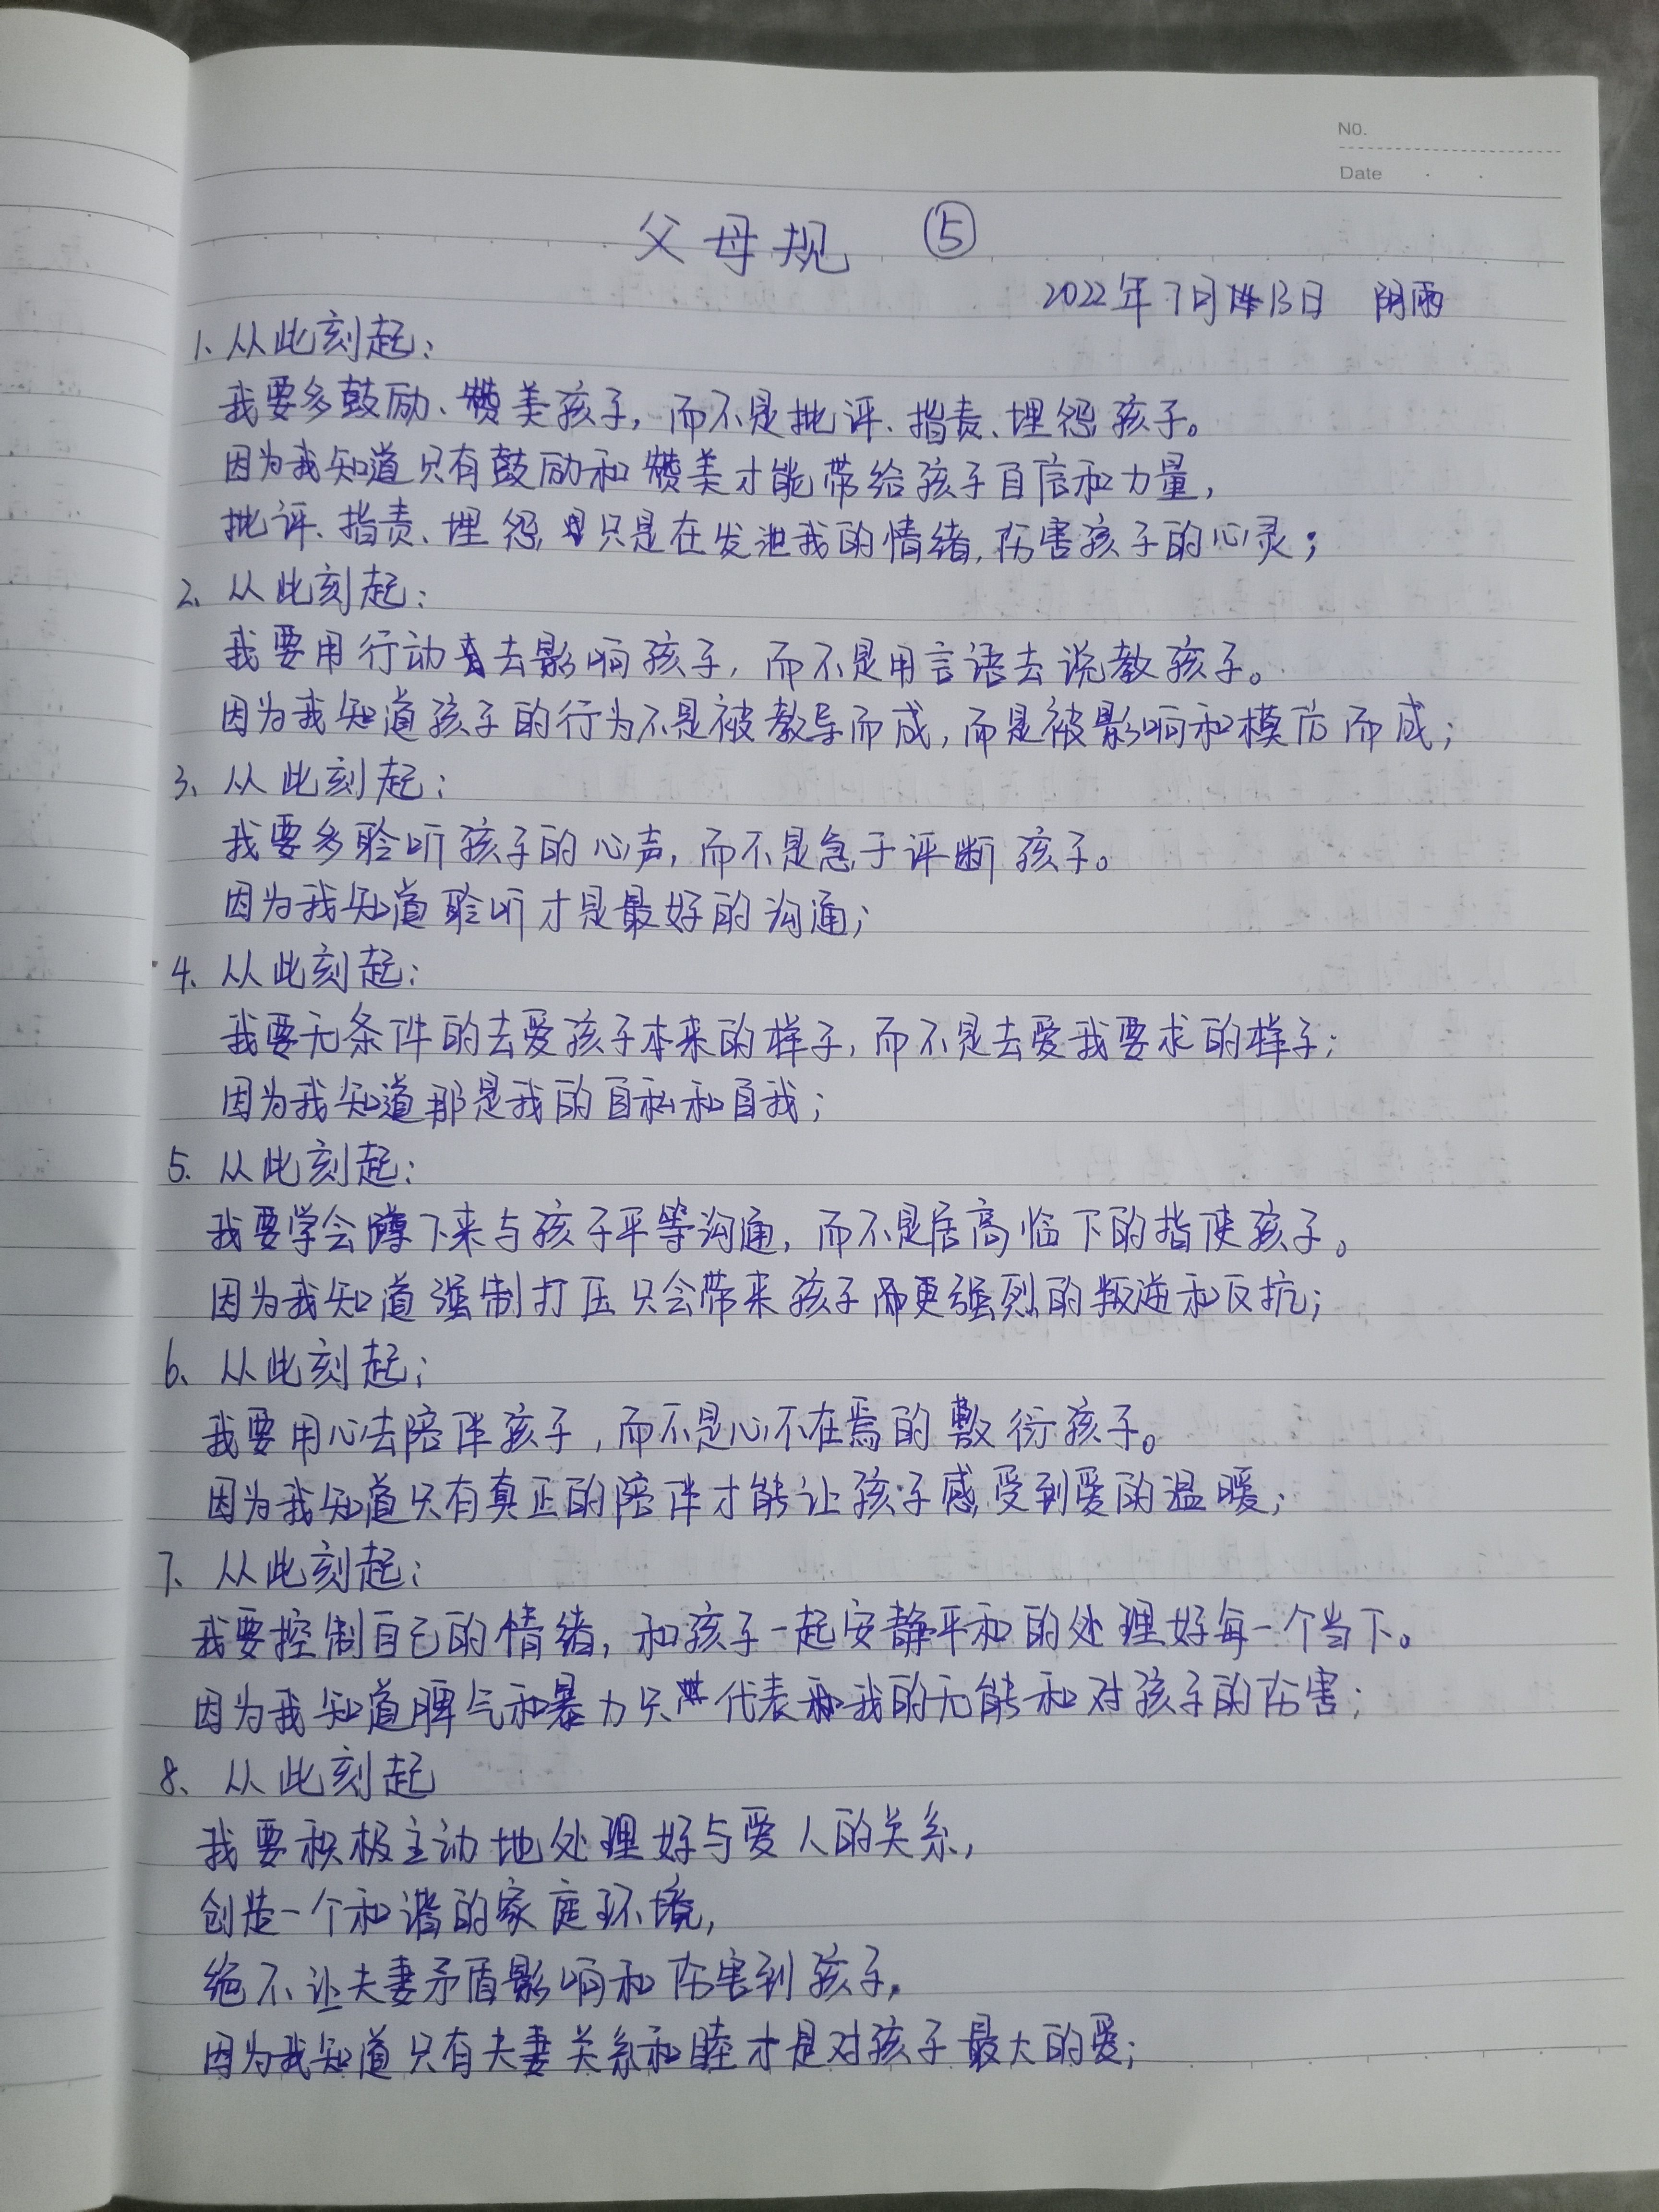 NO.
Date
父母规 ⑤
2022年7月13日 阴雨
1、从此刻起：
我要多鼓励、赞美孩子，而不是批评、指责、埋怨孩子。
因为我知道只有鼓励和赞美才能带给孩子自信和力量，
批评、指责、埋怨，只是在发泄我的情绪，伤害孩子的心灵；
2、从此刻起：
我要用行动去影响孩子，而不是用言语去说教孩子。
因为我知道孩子的行为不是被教导而成，而是被影响和模仿而成；
3、从此刻起：
我要多聆听孩子的心声，而不是急于评断孩子。
因为我知道聆听才是最好的沟通；
4、从此刻起：
我要无条件的去爱孩子本来的样子，而不是去爱我要求的样子；
因为我知道那是我的自私和自我；
5、从此刻起：
我要学会蹲下来与孩子平等沟通，而不是居高临下的指使孩子。
因为我知道强制打压只会带来孩子更强烈的叛逆和反抗；
6、从此刻起；
我要用心去陪伴孩子，而不是心不在焉的敷衍孩子。
因为我知道只有真正的陪伴才能让孩子感受到爱的温暖；
7、从此刻起；
我要控制自己的情绪，和孩子一起安静平和的处理好每一个当下。
因为我知道脾气和暴力只代表我的无能和对孩子的伤害；
8、从此刻起
我要积极主动地处理好与爱人的关系，
创造一个和谐的家庭环境，
绝不让夫妻矛盾影响和伤害到孩子，
因为我知道只有夫妻关系和睦才是对孩子最大的爱；